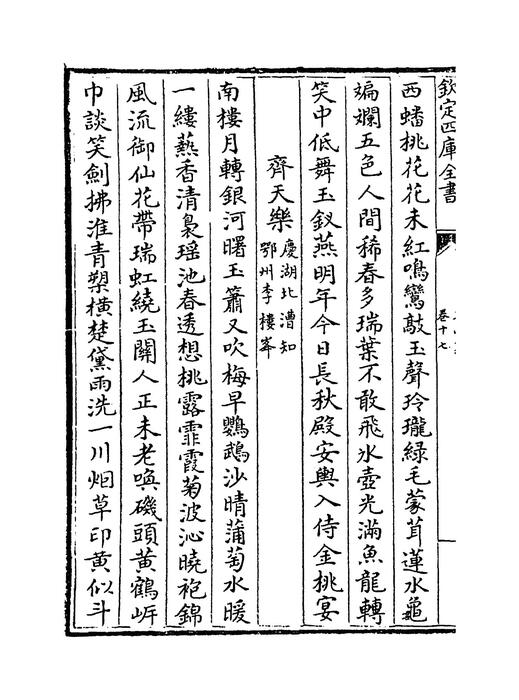 欽定四庫全書
卷十七
西蟠桃花花未紅鳴鸞敲玉聲玲瓏綠毛蒙茸蓮水龜
斒斕五色人間稀春多瑞葉不敢飛氷壺光滿魚龍轉
笑中低舞玉釵燕明年今日長秋殿安輿入侍金桃宴
齊天樂慶湖北漕知
鄂州李樓峯
南樓月轉銀河曙玉簫又吹梅早鸚鵡沙晴蒲萄水暖
一縷𤑔香清裊瑶池春透想桃露霏霞菊波沁曉袍錦
風流御仙花帶瑞虹繞玉關人正未老喚磯頭黃鶴岸
巾談笑劍拂淮青槊横楚黛雨洗一川烟草印黄似斗